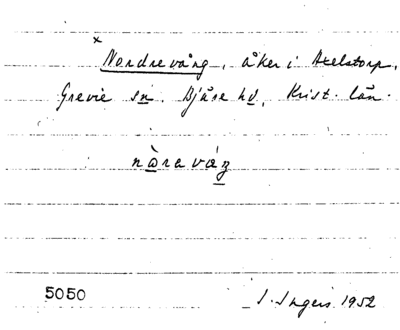 × Nordrevång, åker i Axelstorp,
Grevie sn. Bjäre hd, Krist. län.
nòreváŋ
5050 I. Ingers 1952